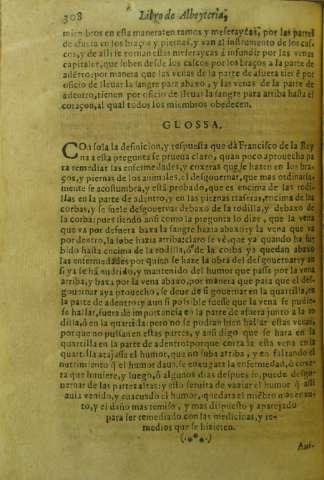 308 Libro de Albeyteria,
miembros en esta manera ten ramos y meseraycas, por las partes
de afuera en los braços y piernas, y van al instrumento de los cas-
cos, y de alli se toman estas meseraycas à infundir por las venas
capitales, que suben desde los cascos por los braços à la parte de
adẽtro: por manera que las venas de la parte de afuera tienẽ por
oficio de lleuar la sangre para abaxo, y las venas de la parte de
adentro, tienen por oficio de lleuar la sangre para arriba hasta el
coraçon, al qual todos los miembros obedecen.
GLOSSA.
CON sola la definicion, y respuesta que dà Francisco de la Rey
na à esta pregunta se prueua claro, quan poco aprouecha pa
ra remediar las enfermedades, y coxeras que se hazen en los bra-
ços, y piernas de los animales, el desgouernar, que mas ordinaria-
mente se acostumbra, y està probado, que es encima de las rodi-
llas en la parte de adentro, y en las piernas traseras, encima de las
corbas, y se suele desgouernar debaxo de la rodilla, y debaxo de
la corba: pues siendo assi como la pregunta lo dize, que la vena
que và por defuera baxa la sangre hazia abaxo, y la vena que và
por dentro, la sube hazia arriba; claro se vè, que yà quando ha su-
bido hasta encima de la rodilla, ò de la corba yà quedan abaxo
las enfermedades por quien se haze la obra del desgouernar, y an
si yà se hà nutrido, y mantenido del humor que passa por la vena
arriba, y baxa por la vena abaxo, por manera que para que el des-
gouernar aya prouecho, se deue de desgouernar en la quartilla, en
la parte de adentro, y aun si possible fuesse que la vena se pudies-
se hallar, fuera de importancia en la parte de afuera junto à la ro
dilla, ò en la quartilla: pero no se podràn bien hallar estas venas,
porque no pulsan en estas partes, y assi digo que se hara en la
quartilla en la parte de adentro: porque corta la esta vena en la
quartilla atajasse el humor, que no suba arriba, y en faltando el
nutrimento q̃ el humor daua, se enxugara la enfermedad, ò coxe-
ra que huuiere, y luego, ò algunos dias despues se puede desgo-
uernar de las partes altas: y esto seruira de vaziar el humor q̃ alli
auia venido, y euacuado el humor, quedara el miẽbro mas enxu-
to, y el daño mas remiso, y mas dispuesto y aparejado
para ser remediado con las medicinas, y re-
medios que se hizieren.
Aui-